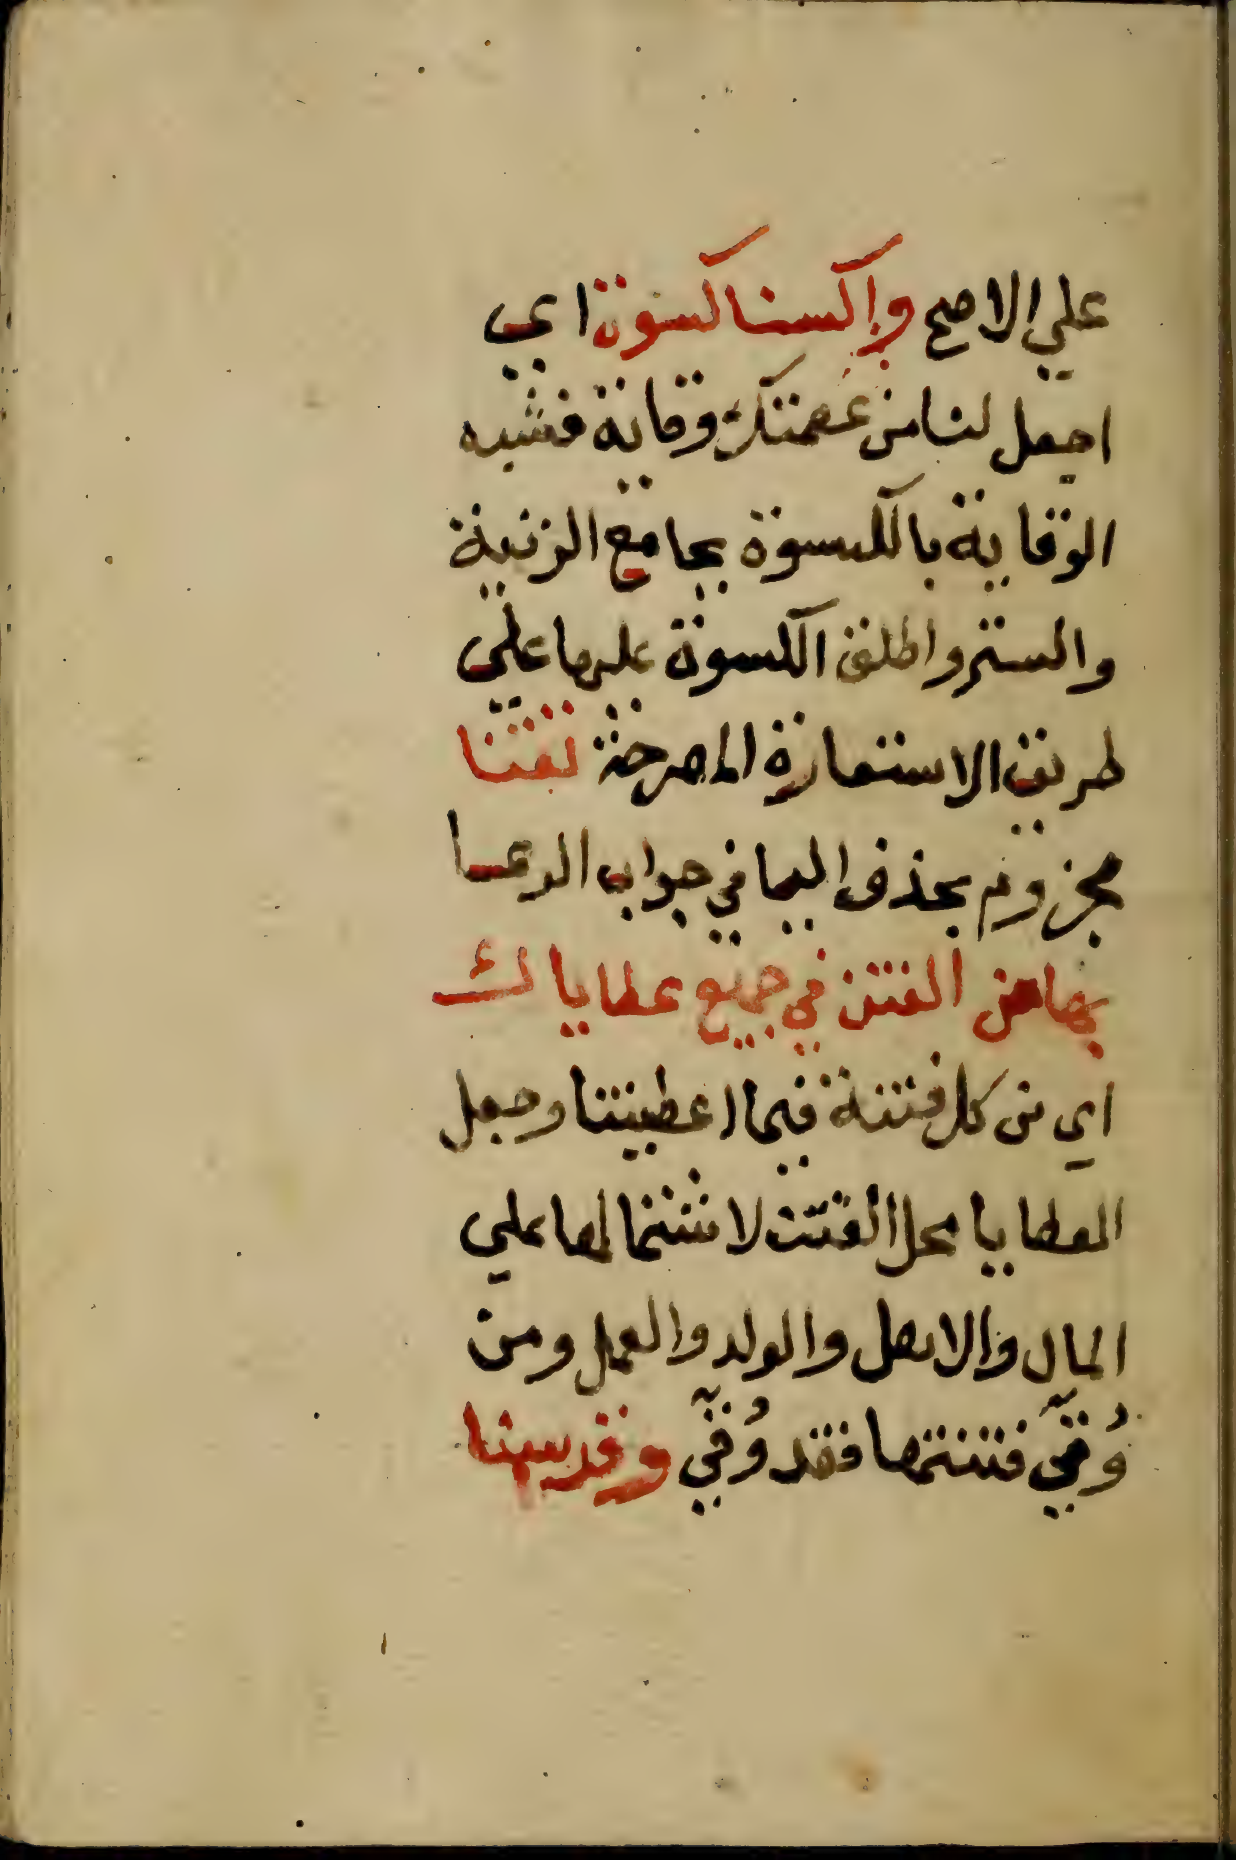 علي الاصح واكسنا كسوة اي
اجعل لنا من عصمتك وقاية فشبه
الوقاية بالكسوة بجامع الزنية
والستر واطلق الكسوة عليها علي
طريق الاستعارة المصرحة تقتنا
مجزوم بحذف اليا في جواب الدعا
بها من الفتن في جميع عطاياك
اي من كل فتنة فيما اعطيتنا وجعل
العطايا محل الفتن لاشتمالها علي
المال والاهل والولد والعمل ومن
وُقيَ فتنتها فقد وُقيَ وقدسنا